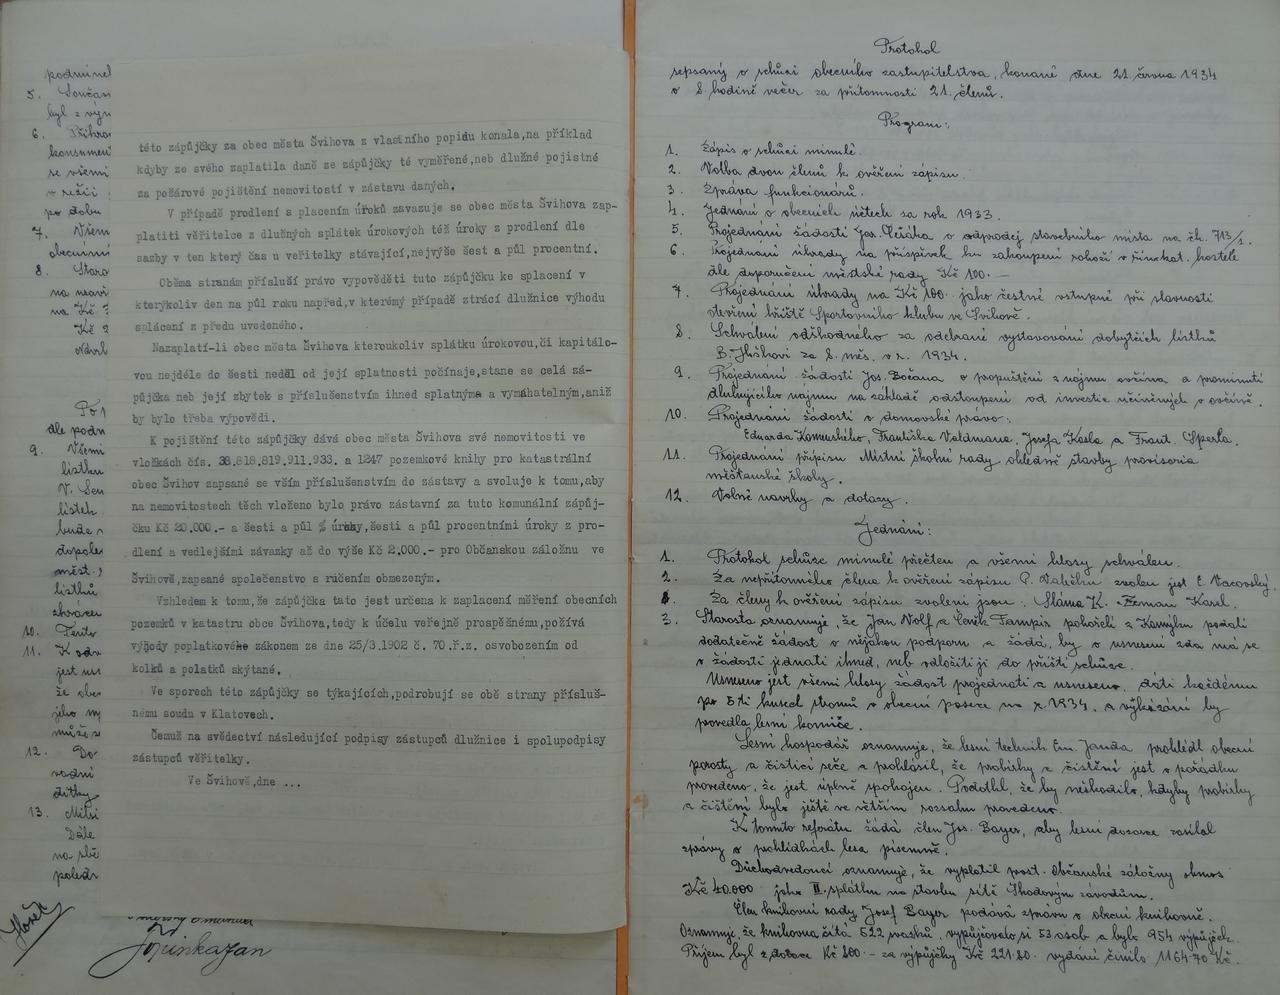 podmínek
5. Součas
byl z výr
6. Přihro
konsumen
se všemi
v režii
po dobu
7. Všem
obecními
8. Staro
na Kč
Kč 2
dle podm
9. Všemi
lístku
V. Sen
lístek
bude
dopole
měst.
lístků
10. Tento
11. K odv
že obe
může
12. Do
13. Místn
Dále
na sbě
poledn
této zápůjčky za obec města Švihova z vlastního popidu konala,na příklad
kdyby ze svého zaplatila daně ze zápůjčky té vyměřené,neb dlužné pojistné
za požárové pojištění nemovitostí v zástavu daných.
V případě prodlení s placením úroků zavazuje se obec města Švihova zap-
platiti věřitelce z dlužných splátek úrokových též úroky z prodlení dle
sazby v ten který čas u věřitelky stávající,nejvýše šest a půl procentní.
Oběma stranám přísluší právo vypověděti tuto zápůjčku ke splacení v
kterýkoliv den na půl roku napřed,v kterémý případě ztrácí dlužnice výhodu
splácení z předu uvedeného.
Nazaplatí-li obec města Švihova kteroukoliv splátku úrokovou,či kapitálo-
vou nejdéle do šesti neděl od její splatnosti počínaje,stane se celá zá-
půjčka neb její zbytek s příslušenstvím ihned splatnýma a vymáhatelným,aniž
by bylo třeba výpovědi.
K pojištění této zápůjčky dává obec města Švihova své nemovitosti ve
vložkách čís. 38.818.819.911.933. a 1247 pozemkové knihy pro katastrální
obec Švihov zapsané se vším příslušenstvím do zástavy a svoluje k tomu,aby
na nemovitostech těch vloženo bylo právo zástavní za tuto komunální zápůj-
čku Kč 20.000.- a šesti a půl % úroky,šesti a půl procentními úroky z pro-
dlení a vedlejšími závazky až do výše Kč 2.000.- pro Občanskou záložnu ve
Švihově,zapsané společenstvo s ručením obmezeným.
Vzhledem k tomu,že zápůjčka tato jest určena k zaplacení měření obecních
pozemků v katastru obce Švihova,tedy k účelu veřejně prospěšnému,požívá
výhody poplatkové zákonem ze dne 25/3.1902 č. 70.ř.z. osvobozením od
kolků a polatků skýtané.
Ve sporech této zápůjčky se týkajících,podrobují se obě strany přísluš-
nému soudu v Klatovech.
Čemuž na svědectví následující podpisy zástupců dlužnice i spolupodpisy
zástupců věřitelky.
Ve Švihově,dne ...
Protokol
sepsaný o schůzi obecního zastupitelstva, konané dne 21. června 1934
o 8. hodině večer za přítomnosti 21. členů.
Program:
1. Zápis o schůzi minulé.
2. Volba dvou členů k ověření zápisu.
3. Zpráva funkcionářů.
4. Jednání o obecních účtech za rok 1933.
5. Projednání žádosti Jos. o odprodej stavebního místa na čk. 713/1.
6. Projednání úhrady na příspěvek ku zakoupení rohoží v římskat. kostele
dle doporučení městské rady Kč 100.—
7. Projednání úhrady na Kč 100. jako čestné vstupné při slavnosti
otevření hřiště Sportovního klubu ve Švihově.
8. Schválení odškodného za odebrané vystavování dobytčích lístků
B. Huškovi za 8. měs. v r. 1934.
9. Projednání žádosti Jos. Bočana o propuštění z nájmu ovčína a prominutí
dlužujícího nájmu na základě odstoupení od investic učiněných v ovčíně.
10. Projednání žádosti o domovské právo:
Eduarda Komenského, Františka Valdmana, Josefa Kosla a Frant. Šperla.
11. Projednání přípisu Místní školní rady ohledně stavby provisoria
měšťanské školy.
12. Volné návrhy a dotazy.
Jednání:
1. Protokol schůze minulé přečten a všemi hlasy schválen.
2. Za nepřítomného člena k ověření zápisu P. zvolen jest E. Vacovský.
Za členy k ověření zápisu zvoleni jsou: Sláma K. Zeman Karel.
3. Starosta oznamuje, že Jan Wolf a Čeněk Tampir pohořelí z Kamýku podali
dodatečně žádost o nějakou podporu a žádá, by o usnesení zda má se
o žádosti jednati ihned, neb odložiti ji do příští schůze.
Usneseno jest všemi hlasy žádost projednati a usneseno, dáti každému
po 5ti kusech stromů v obecní pasece na r. 1934. a vykázání by
provedla lesní komise.
Lesní hospodář oznamuje, že lesní technik Em. Janda prohlédl obecní
porosty a čistící seče a prohlásil, že probírky a čistění jest v pořádku
provedeno, že jest úplně spokojen. Podotkl, že by neškodilo, kdyby probírky
a čištění bylo ještě ve větším rozsahu provedeno.
K tomuto referátu žádá člen Jos. Bayer, aby lesní dozorce zasílal
zprávy o pohlídkách lesa písemně.
Důchodvedoucí oznamuje, že vyplatil prost. Občanské záložny obnos
Kč 40.000 jako II. splátku na stavbu sítě Škodovým závodům.
Člen knihovní rady Josef Bayer podává zprávu o obecní knihovně.
Oznamuje, že knihovna čítá 522 svazků, vypůjčovalo si 53 osob a bylo 954 výpůjček.
Příjem byl z dotace Kč 800 – za výpůjčky Kč 221.80. vydání činilo 1164.70 Kč.